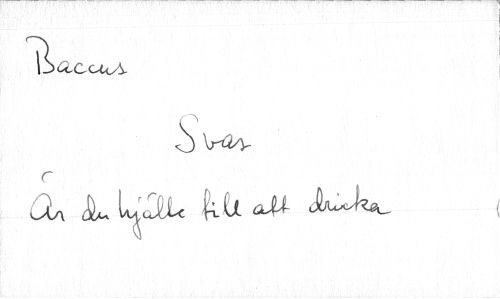 Baccus
Svar
Är du hjälte till att dricka